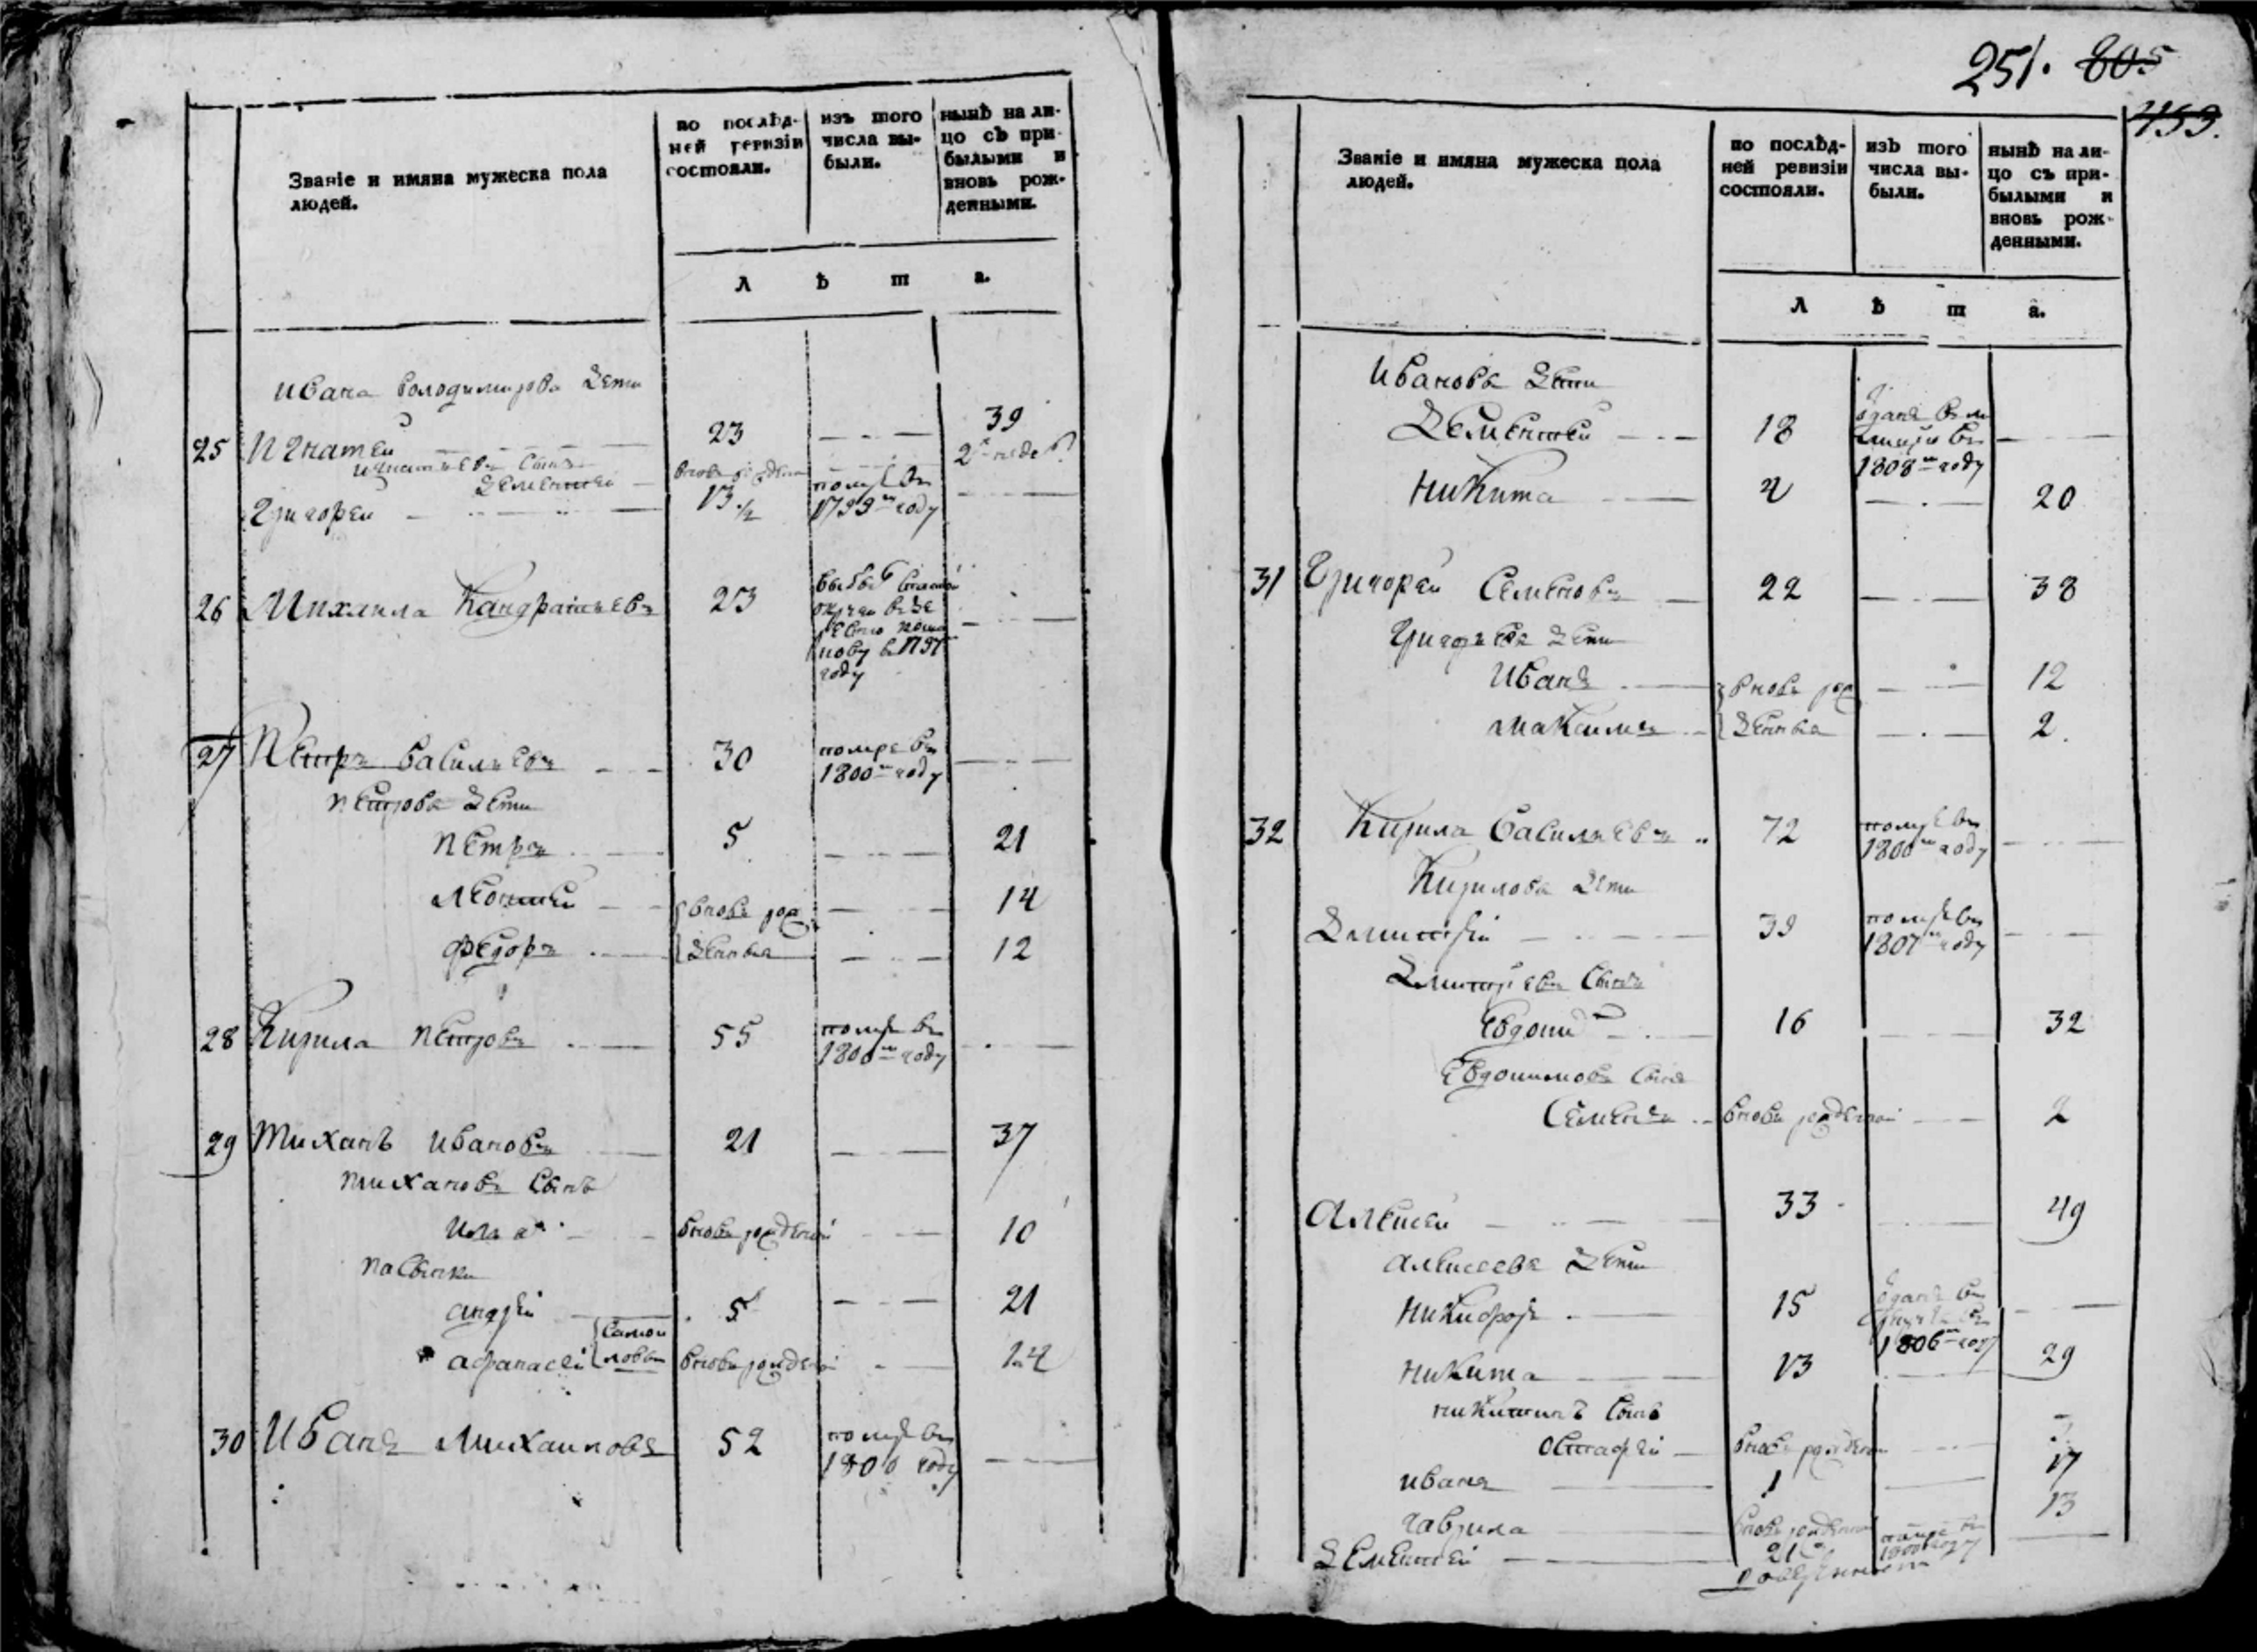 251. 805
453.
Званіе и имяна мужеска пола
людей.
по послѣд-
ней ревизіи
состояли.
изъ того
числа вы-
были.
нынѣ на ли-
цо съ при-
былыми и
вновь рож-
денными.
л ѣ т а.
Ивана Володимирова дети
25 Игнатей 23 39
Игнатьевъ сынъ
Дементей вновь 2
Григорей 13 ½ помре въ 1799м году
26 Михаила Кандратьевъ 23
в 1797
году
27 Петръ Васильевъ 30 помре въ
1800м году
Петрова дети
Петръ 5 21
Леонтей вновь рож 14
Федоръ денныя 12
28 Кирила Петровъ 55 помре въ
1800м году
29 Тиханъ Ивановъ 21 37
Тихановъ сынъ
Илья вновь рожденной 10
Пасынки
Андрей 5 21
Афанасей Самои
ловы вновь рожденой 14
30 Иванъ Михаиловъ 52 помре въ
1800 году
Званіе и имяна мужеска пола
людей.
по послѣд-
ней ревизіи
состояли.
изъ того
числа вы-
были.
нынѣ на ли-
цо съ при-
былыми и
вновь рож-
денными.
л ѣ т а.
Иванова дети
Дементей 18 отданъ въ ми
лицію въ
1808м году
Никита 4 20
31 Григорей Семеновъ 22 38
Григорьева дети
Иванъ вновь рож 12
Максимъ денныя 2.
32 Кирила Васильевъ 72 помре въ
1800м году
Кирилова дети
Дмитрей 39 помре въ
1807м году
Дмитріевъ сынъ
Евдоким 16 32
Евдокимовъ сынъ
Семенъ вновь рожденной 2
Алексей 33 49
Алексеева дети
Никифоръ 15 отданъ въ
рекруты въ
1806м году
Никита 13 29
Никитинъ сынъ
Остафей вновь рожденой
Иванъ 1 17
Гаврила вновь рожденной 13
Дементей 21 помре въ
1800 году